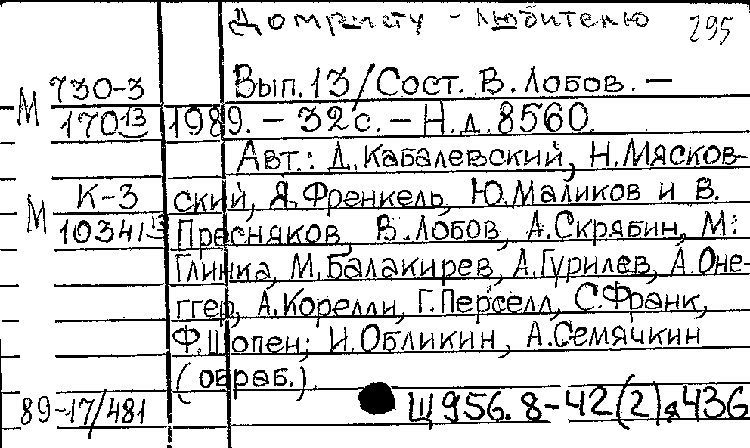 Домристу - любителю 295
М 730-3 Вып.13/Сост. В.Лобов. —
17013 1989. – 32с. – Н.д. 8560.
Авт.: Д.Кабалевский, Н.Мясков-
М К-3 ский, Я.Френкель, Ю.Маликов и В.
10341 13 Пресняков, В.Лобов, А.Скрябин, М.
Глинка, М.Балакирев, А.Гурилев, А.Оне-
ггер, А.Корелли, Г.Перселл, С.Франк,
Ф.Шопен; И.Обликин, А.Семячкин
(обраб.).
89-17/481 Щ956.8-42(2)я436